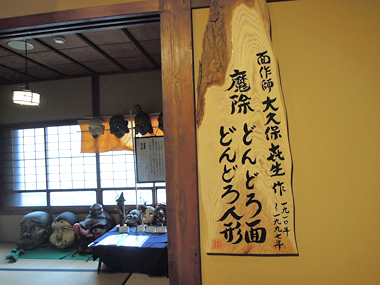 面作師 大久保㐂生 作 一九一〇年〜一九九七年
魔除 どんどろ面
どんどろ人形